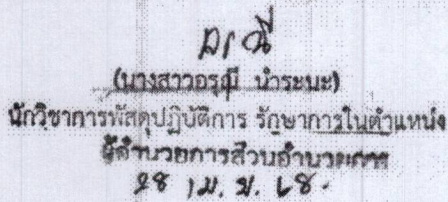 (นางสาวอรุณี นำระนะ)
นักวิชาการพัสดุปฏิบัติการ รักษาการในตำแหน่ง
ผู้อำนวยการส่วนอำนวยการ
28 เม.ย. 68